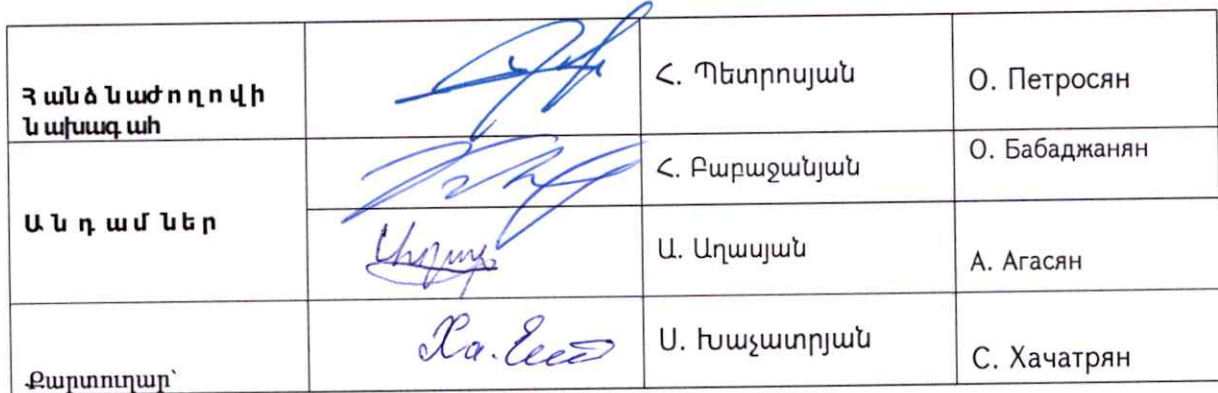 Հանձնաժողովի
նախագահ
Հ. Պետրոսյան
О. Петросян
Անդամներ
Հ. Բաբաջանյան
О. Бабаджанян
Ա. Աղասյան
А. Агасян
Քարտուղար՝
Ս. Խաչատրյան
С. Хачатрян